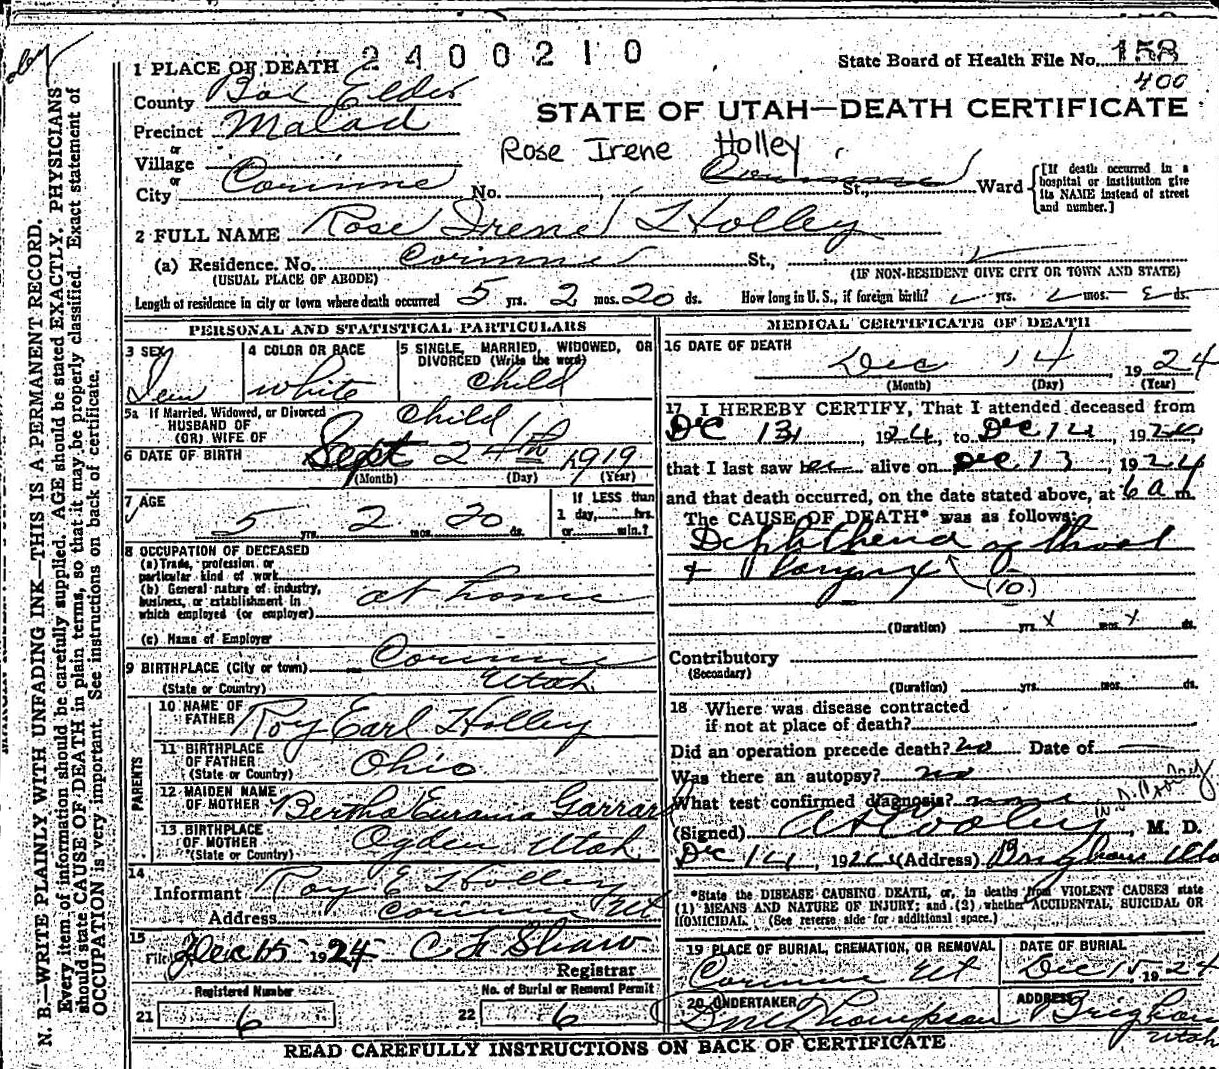 2400210
1 PLACE OF DEATH
State Board of Health File No. 158
400
County Box Elder
STATE OF UTAH—DEATH CERTIFICATE
Precinct Malad
or
Village
Rose Irene Holley
or
City Corinne No. St., Ward
[If death occurred in a hospital or institution give its NAME instead of street and number.]
2 FULL NAME Rose Irene Holley
(a) Residence. No. Corinne St.,
(USUAL PLACE OF ABODE) (IF NON-RESIDENT GIVE CITY OR TOWN AND STATE)
Length of residence in city or town where death occurred 5 yrs. 2 mos. 20 ds. How long in U.S., if foreign birth? yrs. mos. ds.
PERSONAL AND STATISTICAL PARTICULARS
3 SEX Fem
4 COLOR OR RACE white
5 SINGLE, MARRIED, WIDOWED, OR DIVORCED (Write the word) child
5a If Married, Widowed, or Divorced
HUSBAND OF
(OR) WIFE OF child
6 DATE OF BIRTH Sept 24th 1919
(Month) (Day) (Year)
7 AGE 5 yrs. 2 mos. 20 ds.
If LESS than
1 day, hrs.
or min.?
8 OCCUPATION OF DECEASED
(a) Trade, profession, or
particular kind of work
(b) General nature of industry,
business, or establishment in
which employed (or employer) at home
(c) Name of Employer
9 BIRTHPLACE (City or town) Corinne
(State or Country) Utah
PARENTS
10 NAME OF
FATHER Roy Earl Holley
11 BIRTHPLACE
OF FATHER Ohio
(State or Country)
12 MAIDEN NAME
OF MOTHER Bertha Garrard
13 BIRTHPLACE
OF MOTHER Ogden Utah
(State or Country)
14
Informant Roy E Holley
Address Corinne Ut
15
Filed Dec 15 1924 C F Shaw
Registrar
Registered Number
21 6
No. of Burial or Removal Permit
22 6
MEDICAL CERTIFICATE OF DEATH
16 DATE OF DEATH
Dec 14 1924
(Month) (Day) (Year)
17 I HEREBY CERTIFY, That I attended deceased from
Dec 13, 1924, to Dec 14, 1924,
that I last saw her alive on Dec 13 1924
and that death occurred, on the date stated above, at 6 a m.
The CAUSE OF DEATH* was as follows:
Diphtheria of throat
+ larynx (10)
(Duration) yrs. x mos. x ds.
Contributory
(Secondary)
(Duration) yrs. mos. ds.
18 Where was disease contracted
if not at place of death?
Did an operation precede death? no Date of
Was there an autopsy? no
What test confirmed diagnosis? none
(Signed) M. D.
Dec 14, 1924 (Address) Brigham Utah
*State the DISEASE CAUSING DEATH, or, in deaths from VIOLENT CAUSES state
(1) MEANS AND NATURE OF INJURY; and (2) whether ACCIDENTAL, SUICIDAL OR
HOMICIDAL. (See reverse side for additional space.)
19 PLACE OF BURIAL, CREMATION, OR REMOVAL Corinne Ut
DATE OF BURIAL Dec 15, 1924
20 UNDERTAKER Thompson
ADDRESS Brigham Utah
READ CAREFULLY INSTRUCTIONS ON BACK OF CERTIFICATE
N. B—WRITE PLAINLY WITH UNFADING INK—THIS IS A PERMANENT RECORD.
Every item of information should be carefully supplied. AGE should be stated EXACTLY. PHYSICIANS
should state CAUSE OF DEATH in plain terms, so that it may be properly classified. Exact statement of
OCCUPATION is very important. See instructions on back of certificate.